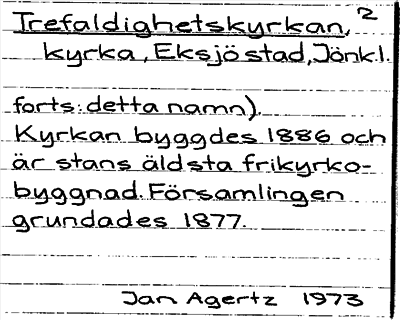 Trefaldighetskyrkan, 2
kyrka, Eksjö stad, Jönk.l.
forts: detta namn).
Kyrkan byggdes 1886 och
är stans äldsta frikyrko-
byggnad. Församlingen
grundades 1877.
Jan Agertz 1973